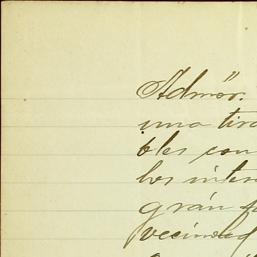 Admör.
una tira
bles con
los inter
grán
vecindad